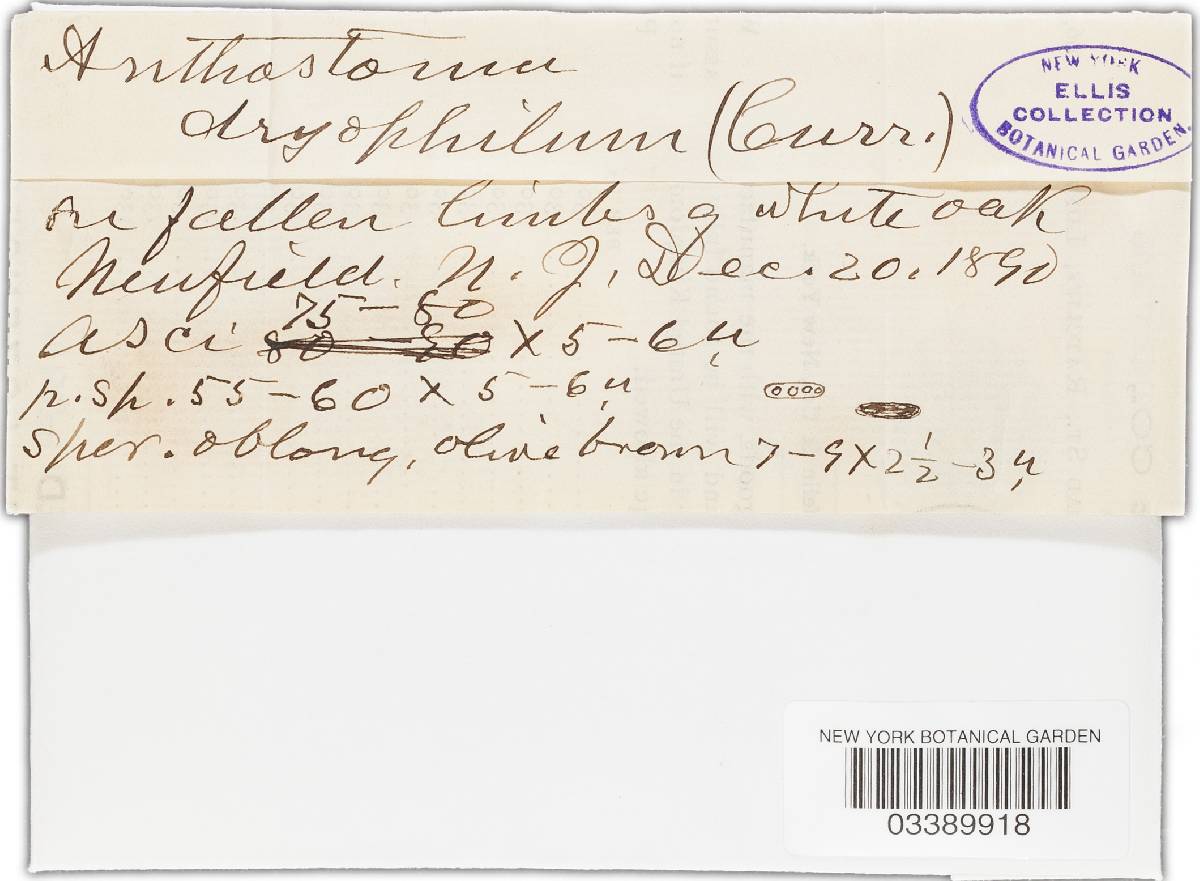 Anthostoma
dryophilum (Curr.)
NEW YORK
ELLIS
COLLECTION
BOTANICAL GARDEN.
on fallen limbs of white oak
Newfield. N. J., Dec. 20. 1890
75 – 80
asci 80 – 90 × 5 – 6 µ
p. sp. 55 – 60 × 5 – 6 µ
sper. oblong, olive brown 7 – 9 × 2 1/2 – 3 µ
NEW YORK BOTANICAL GARDEN
03389918